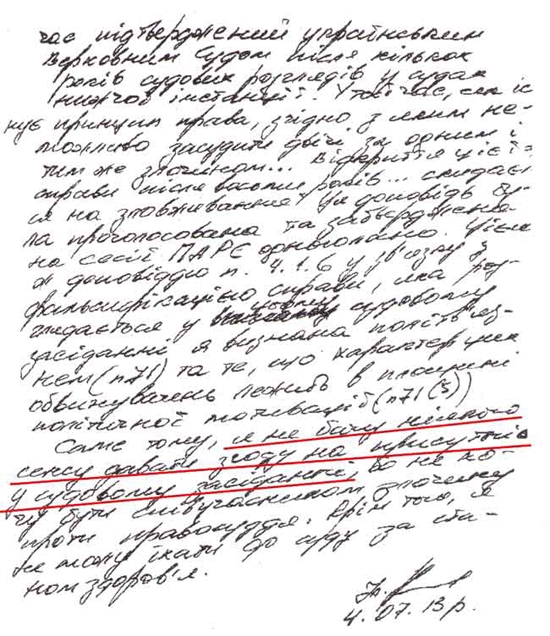 час підтверджений українським
Верховним Судом після кількох
років судових розглядів у судах
нижчої інстанції. У той час, як іс
нує принцип права, згідно з яким не-
можливо засудити двічі за одним і
тим же злочином... Відкриття цієї
справи після восьми років... скидаєт
ся на зловживання". Ця доповідь бу-
ла проголосована та затверджена
на сесії ПАРЄ одноголосно. Цією
ж доповіддю п. 4.1.6 у зв'язку з
фальсифікацією справи, яка роз
глядається у цьому судовому
засіданні я визнана політв'яз-
нем (п71) та те, що характер уж
обвинувачень лежить в площині
політичної мотивації (п71(5))
Саме тому, я не бачу ніякого
сенсу давати згоду на присутніс
у судовому засіданні, бо не хо-
чу бути співучасником злочину
проти правосуддя. Крім того, я
не можу їхати до суду за ста-
ном здоров'я.
4.07.13 р.